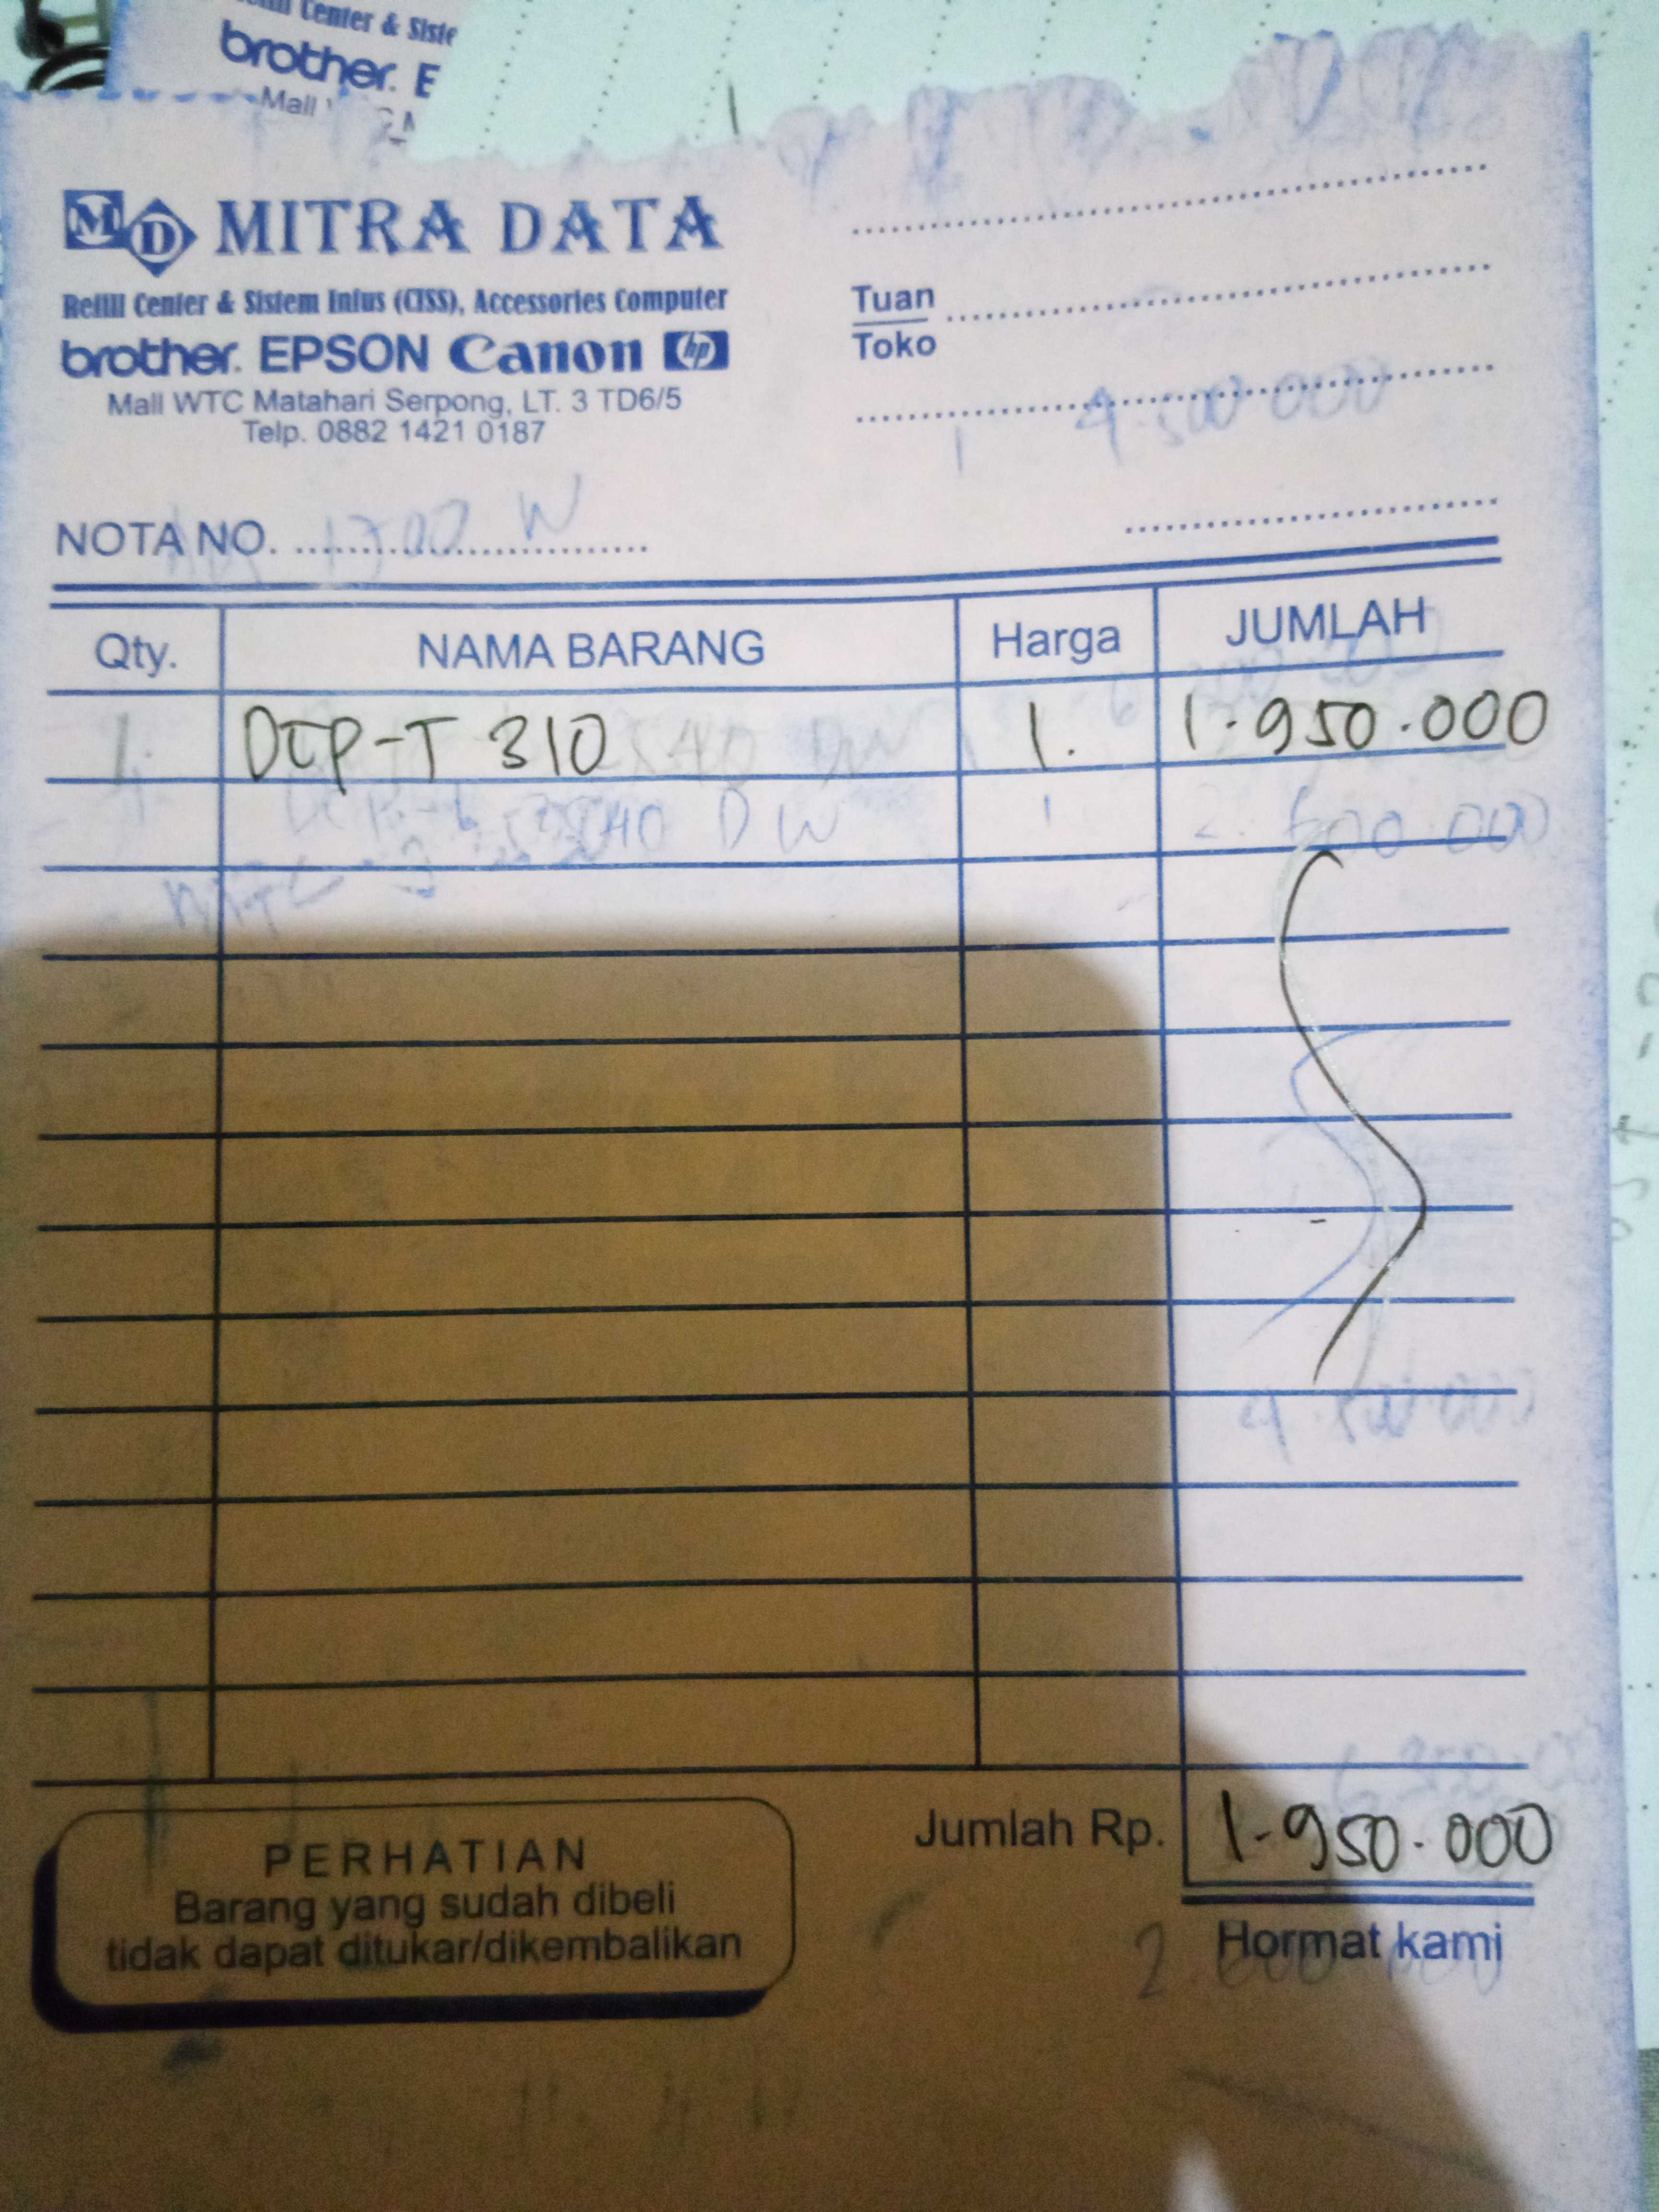 brother. E
Mall
MD MITRA DATA
Refill Center & Sistem Infus (CISS), Accessories Computer
brother. EPSON Canon hp
Mall WTC Matahari Serpong, LT. 3 TD6/5
Telp. 0882 1421 0187
Tuan
Toko
4.500 000
NOTA NO. ..........
Qty. NAMA BARANG Harga JUMLAH
1. DCP-T 310 1. 1.950.000
40 DW 1 2.600.000
Jumlah Rp. 1.950.000
PERHATIAN
Barang yang sudah dibeli
tidak dapat ditukar/dikembalikan
Hormat kami